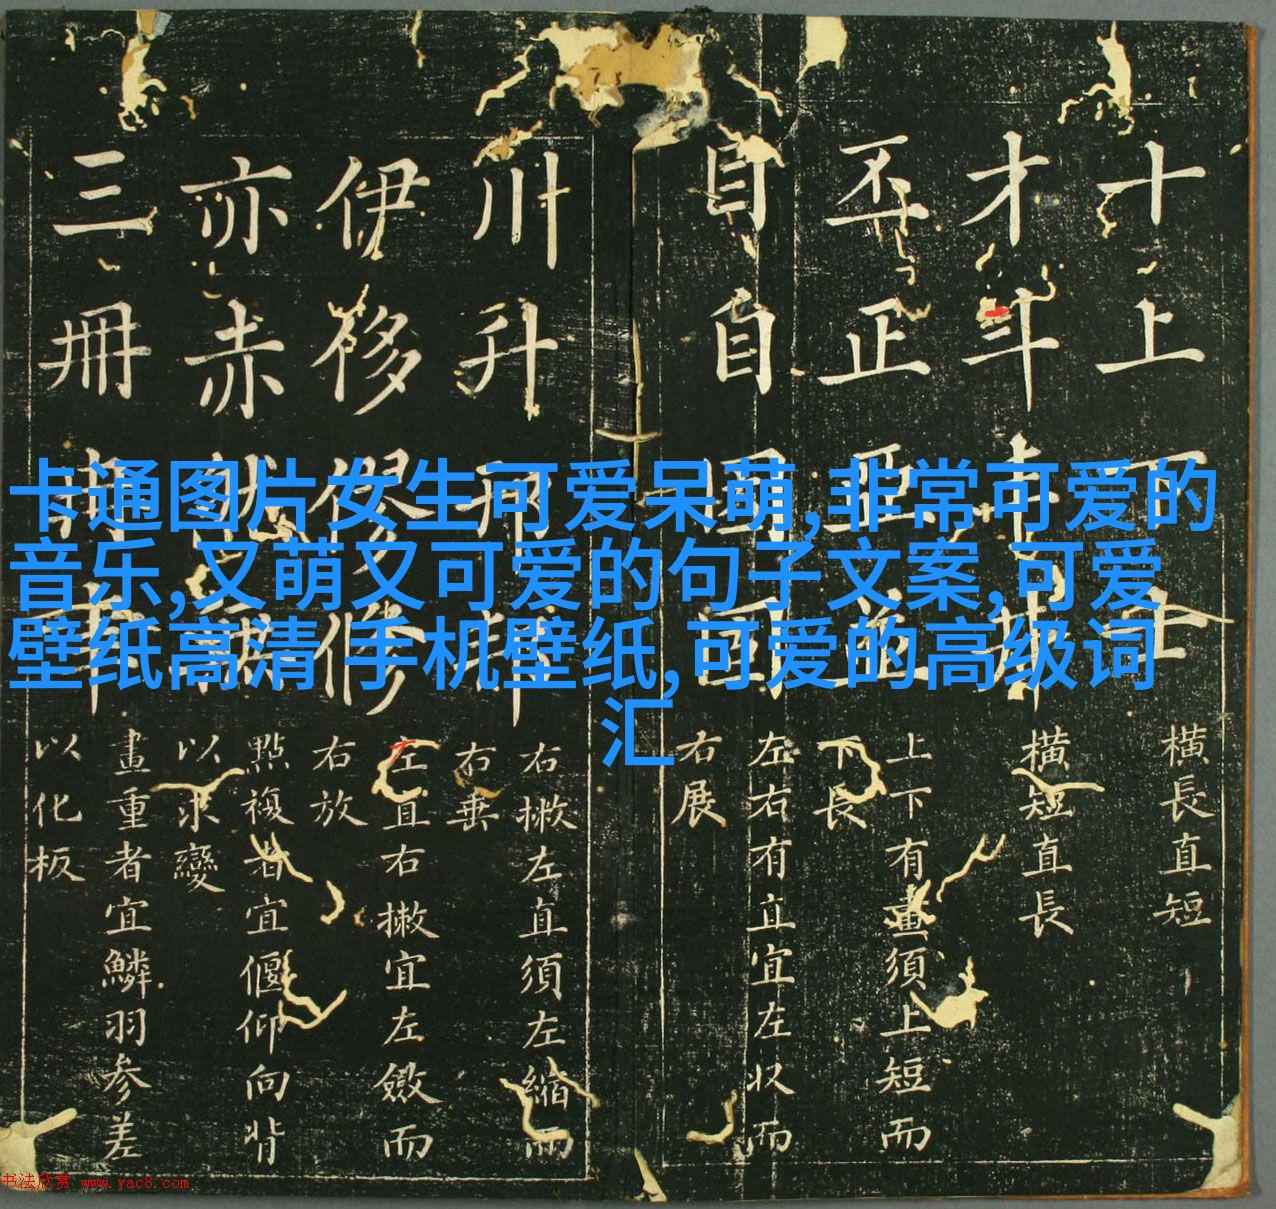 卡通图片女生可爱呆萌,非常可爱的
音乐,又萌又可爱的句子文案,可爱
壁纸高清 手机壁纸,可爱的高级词
汇
十上下士
橫長直短
才斗
橫短直長
丕正亞並
上下有畫須上短而
下長
目自
左右有直宜左收而
右展
川升
右撇左直須左縮而
右垂
伊侈
左直右撇宜左斂而
右放
亦赤
點複者宜偃仰向背
以求變
三冊
畫重者宜鱗羽參差
以化板
书法欣赏 www.yac8.com